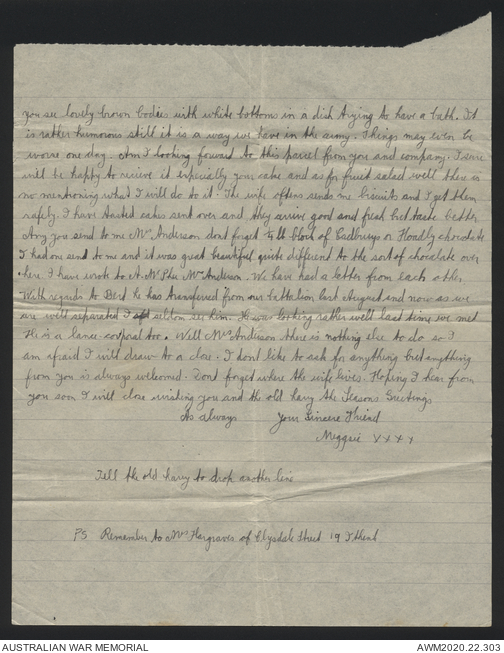 you see lovely brown bodies with white bottoms in a dish trying to have a bath. It
is rather humorous still it is a way we have in the army. Things may even be
worse one day. Am I looking foward to this parcel from you and company. I sure
will be happy to receive it especially your cake and as for fruid salad well there is
no mentioning what I will do to it. The wife oftens sends me biscuits and I get them
safely. I have tasted cakes sent over and they arrive good and fresh but taste better
Any you send to me Mrs Anderson dont forget ½ lb block of Cadburys or Hoadly chocolate
I had one send to me and it was great beautiful quite different to the sort of chocolate over
here. I have wrote to A. McPhee Mrs Anderson. We have had a letter from each other.
With regards to Bert he has transferred from our battalion last August and now as we
are well separated I seldom see him. He was looking rather well last time we met
He is a lance-corporal too. Well Mrs Anderson there is nothing else to do so I
am afraid I will draw to a close. I dont like to ask for anything but anything
from you is always welcomed. Dont forget where the wife lives. Hoping I hear from
you soon I will close wishing you and the old harry the Seasons Greetings
As always Your Sincere Friend
Meggsie xxxx
Tell the old harry to drop another line
PS Remember to Mrs Hargraves of Clysdale Street 19 I think
AUSTRALIAN WAR MEMORIAL
AWM2020.22.303